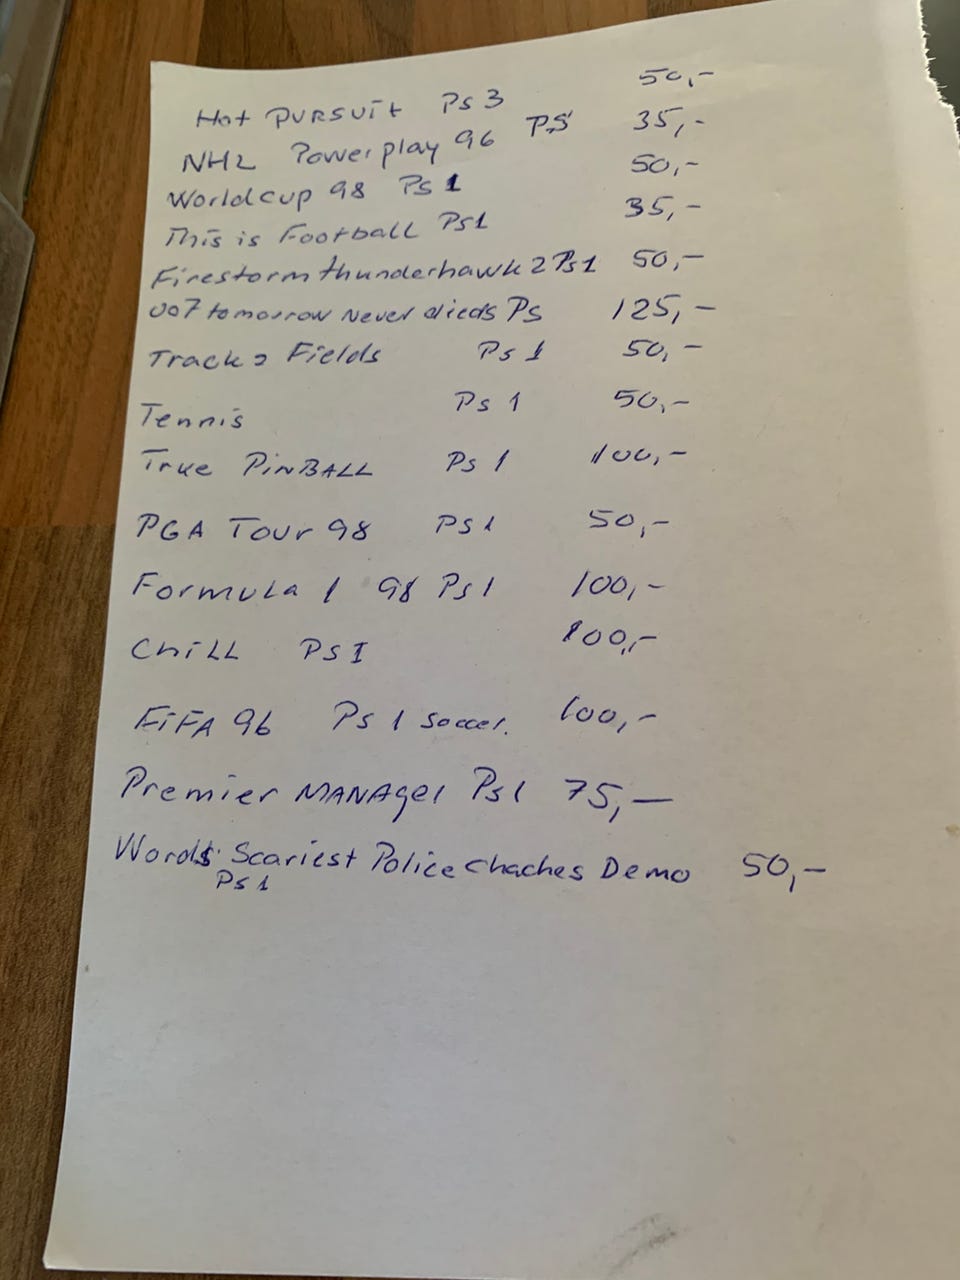 Hot PURSUit Ps 3 50,-
NHL Powerplay 96 PS 35,-
Worldcup 98 Ps 1 50,-
This is Football Ps1 35,-
Firestorm thunderhawk 2 Ps1 50,-
007 tomorrow Never dieds Ps 125,-
Track 2 Fields Ps 1 50,-
Tennis Ps 1 50,-
True PinBALL Ps 1 100,-
PGA Tour 98 Ps 1 50,-
Formula 1 98 Ps 1 100,-
ChiLL PS I 100,-
FiFA 96 Ps 1 Soccer. 100,-
Premier MANAger Ps 1 75,-
Words Scariest Police Chaches Demo 50,-
Ps 1